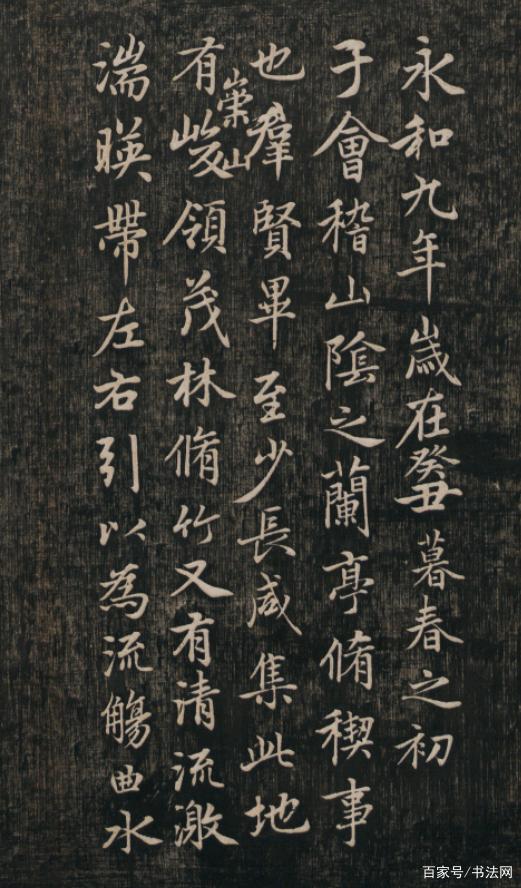 永和九年歲在癸丑暮春之初
于會稽山陰之蘭亭脩稧事
也羣賢畢至少長咸集此地
崇山
有峻領茂林脩竹又有清流激
湍暎帶左右引以為流觴曲水
百家号/书法网